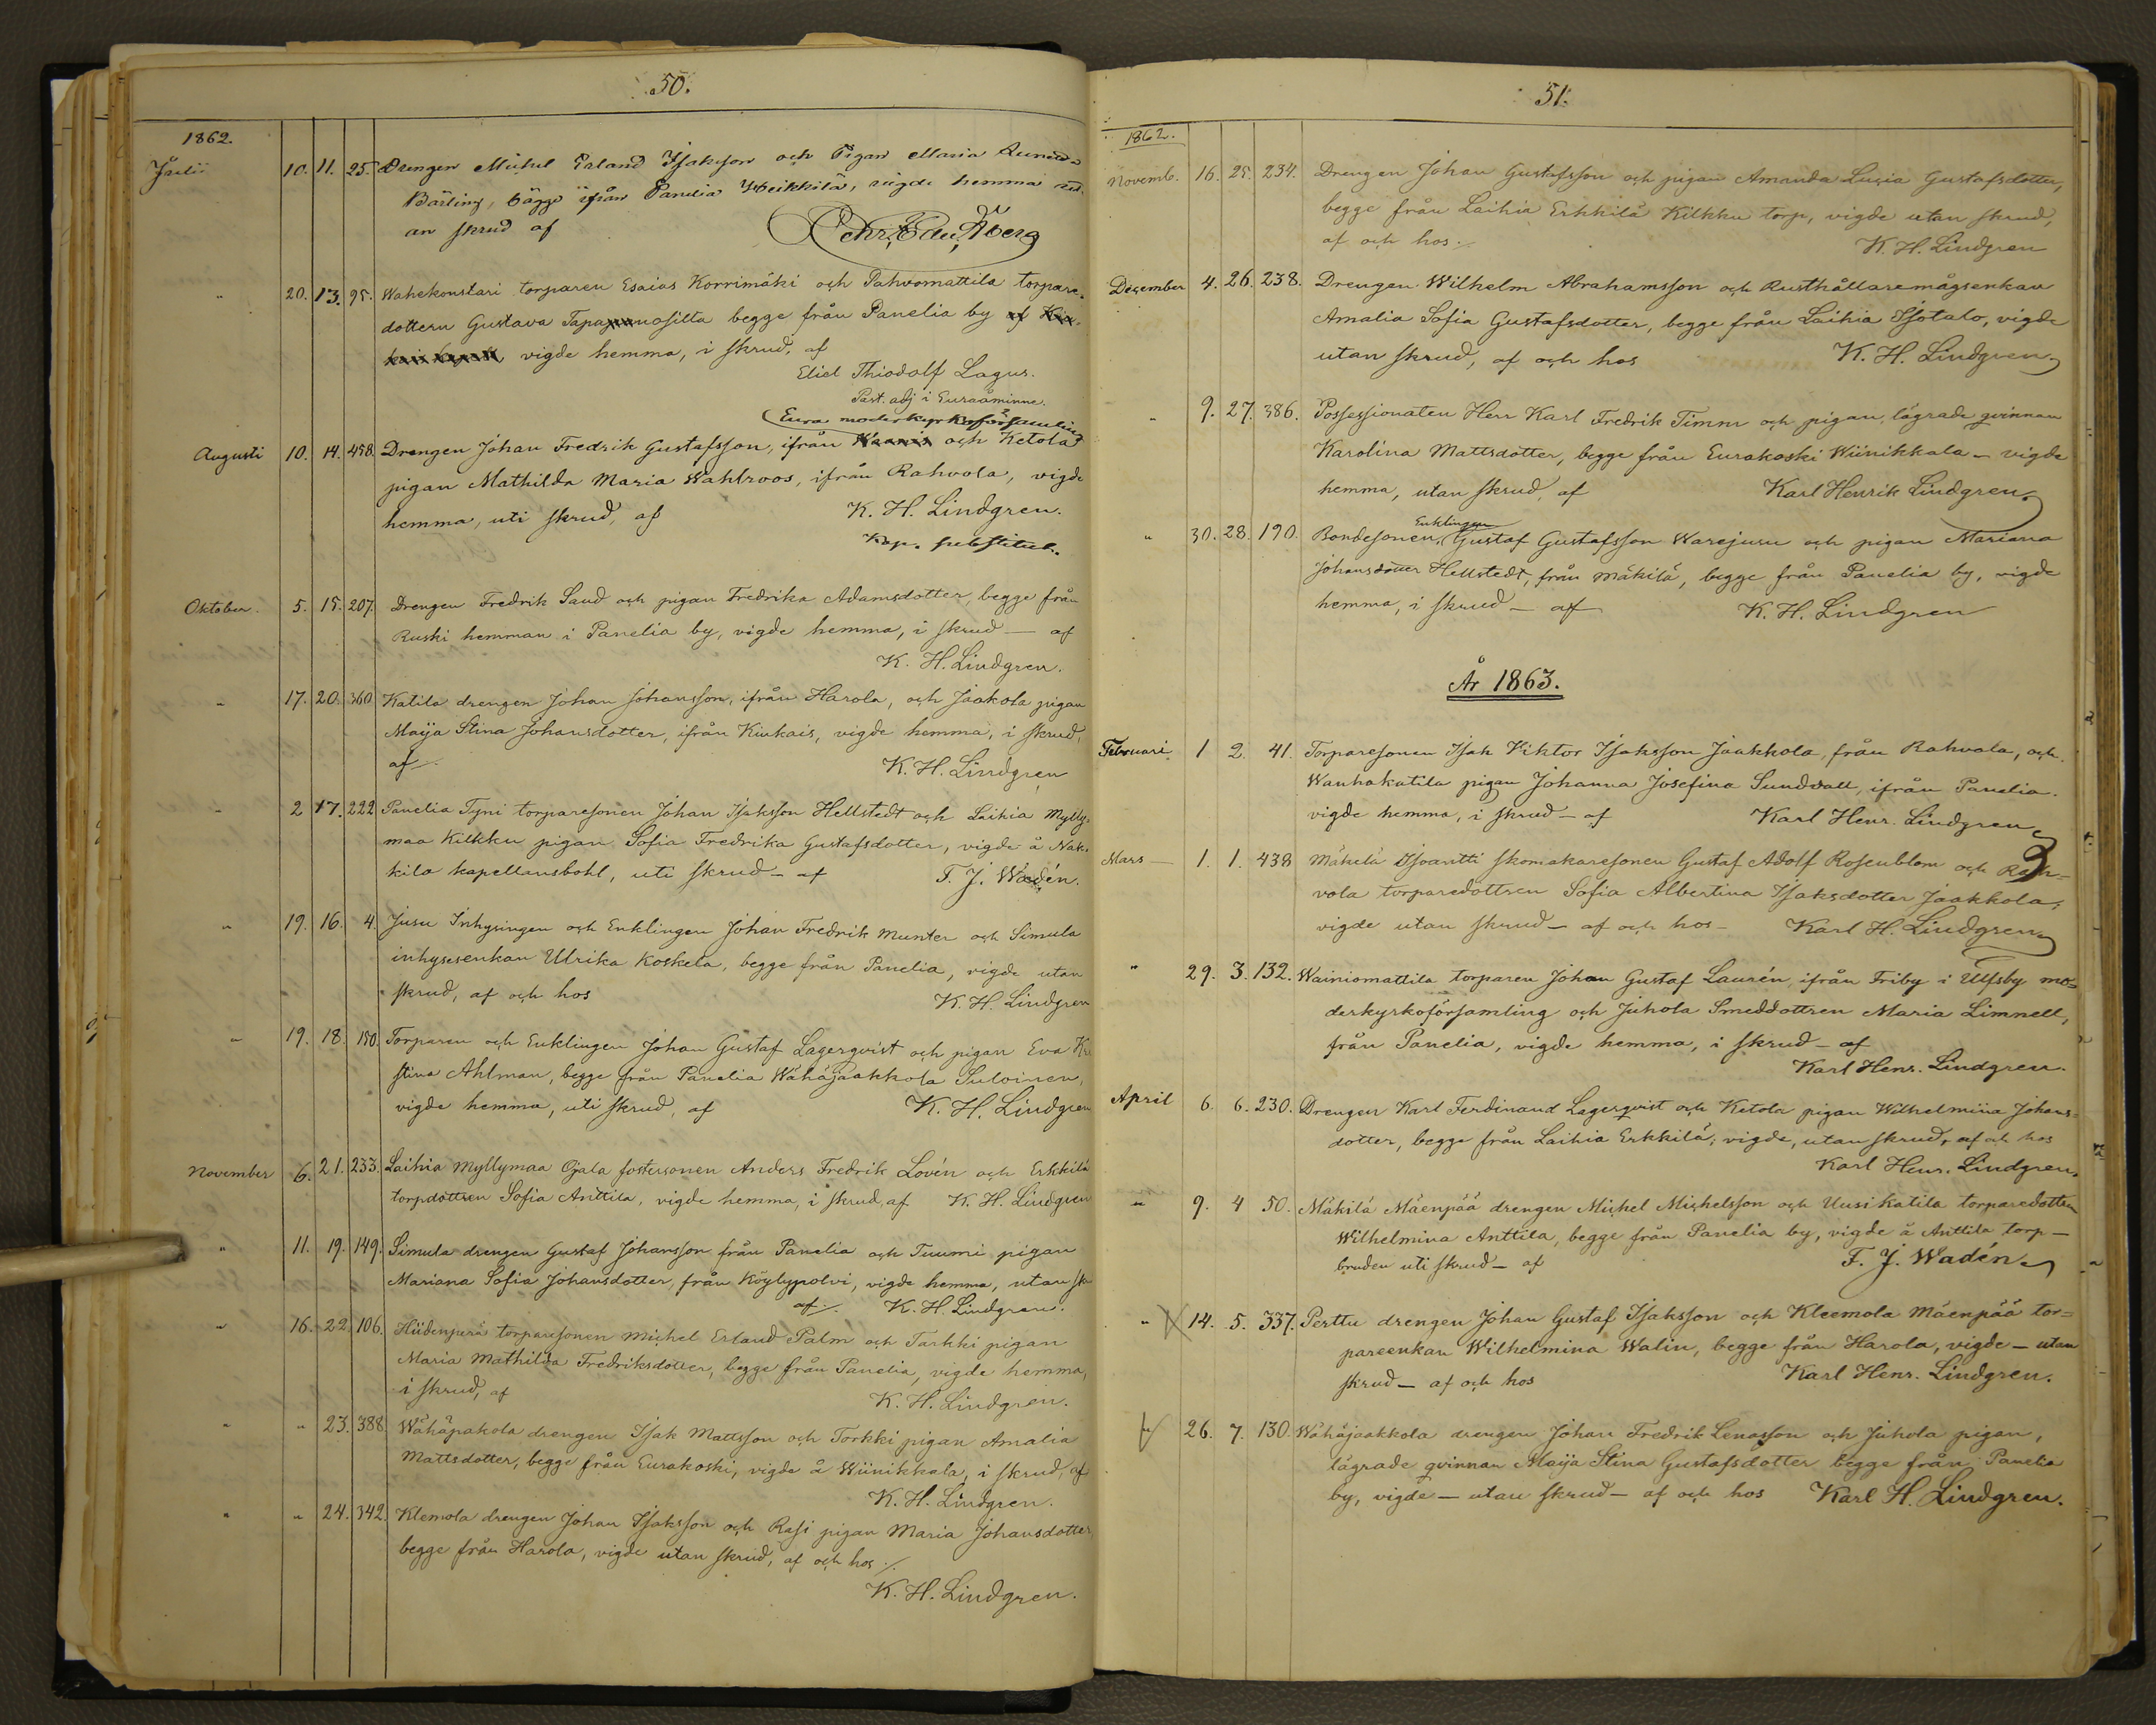 50.
1862.
Julii 10. 11. 25. Drengen Michel Erland Isaksson och Pigan Maria
Bärling, bägge ifrån Panelia Heikkilä, vigde hemma ut-
an skrud af
" 20. 13. 95. Wahekonstari torparen Esaias Korrimäki och Pahvomattila torpare-
dottern Gustava begge från Panelia by
vigde hemma, i skrud, af
Eliel Thiodolf Lagus.
Past. adj i Euraåminne.
Eura moderkyrkoförsamling
Augusti 10. 14. 458. Drengen Johan Fredrik Gustafsson, ifrån och Ketola
pigan Mathilda Maria Wahlroos, ifrån Rahvola, vigde
hemma, uti skrud, af K. H. Lindgren.
Kap. substitut.
Oktober. 5. 15. 207. Drengen Fredrik Sand och pigan Fredrika Adamsdotter, begge från
Ruski hemman i Panelia by, vigde hemma, i skrud — af
K. H. Lindgren.
" 17. 20. 360 Katila drengen Johan Johansson, ifrån Harola, och Jaakola pigan
Maija Stina Johansdotter, ifrån Kiukais, vigde hemma, i skrud,
af K. H. Lindgren
" 2 17. 222 Panelia Tyni torparesonen Johan Isaksson Hellstedt och Laihia Mylly-
maa Kilkku pigan Sofia Fredrika Gustafsdotter, vigde å Nak-
kila kapellansbohl, uti skrud — af F. J. Wadén.
" 19. 16. 4. Jusu Inhysingen och Enklingen Johan Fredrik Munter och Simula
inhysesenkan Ulrika Koskela, begge från Panelia, vigde utan
skrud, af och hos K. H. Lindgren
" 19. 18. 150. Torparen och Enklingen Johan Gustaf Lagerqvist och pigan Eva Kri
stina Ahlman, begge från Panelia Wähäjaakkola Suloinen,
vigde hemma, uti skrud, af K. H. Lindgren
November 6. 21. 233. Laihia Myllymaa Ojala fostersonen Anders Fredrik Lovén och Erkkilä
torpdottren Sofia Anttila, vigde hemma, i skrud, af K. H. Lindgren
" 11. 19. 149. Simula drengen Gustaf Johansson från Panelia och Tuumi pigan
Mariana Sofia Johansdotter, från Köylypolvi, vigde hemma, utan skr
af. K. H. Lindgren.
" 16. 22. 106. Hiidenperä torparesonen Michel Erland Palm och Tarkki pigan
Maria Mathilda Fredriksdotter, begge från Panelia, vigde hemma,
i skrud, af K. H. Lindgren.
" " 23. 388. Wähäpakola drengen Isak Mattsson och Torkki pigan Amalia
Mattsdotter, begge från Eurakoski, vigde å Wiinikkala, i skrud, af
K. H. Lindgren.
" " 24. 342. Klemola drengen Johan Isaksson och Rasi pigan Maria Johansdotter
begge från Harola, vigde utan skrud, af och hos
K. H. Lindgren.
51.
1862.
Novemb. 16. 25. 234. Drengen Johan Gustafsson och pigan Amanda Lucia Gustafsdotter,
begge från Laihia Erkkilä Kilkku torp, vigde utan skrud,
af och hos K. H. Lindgren
December 4. 26. 238. Drengen Wilhelm Abrahamsson och Rusthållaremågsenkan
Amalia Sofia Gustafsdotter, begge från Laihia Isotalo, vigde
utan skrud, af och hos K. H. Lindgren
" 9. 27. 386. Possessionaten Herr Karl Fredrik Timm och pigan, lägrade qvinnan
Karolina Mattsdotter, begge från Eurakoski Wiinikkala — vigde
hemma, utan skrud, af Karl Henrik Lindgren.
Enklingen
" 30. 28. 190. Bondesonen, Gustaf Gustafsson Warejusu och pigan Mariana
Johansdotter Hellstedt, från Mäkilä, begge från Panelia by, vigde
hemma, i skrud — af K. H. Lindgren
År 1863.
Februari 1 2. 41. Torparesonen Isak Viktor Isaksson Jaakkola, från Rahvola, och
Wanhakatila pigan Johanna Josefina Sundvall, ifrån Panelia.
vigde hemma, i skrud — af Karl Henr. Lindgren
Mars — 1. 1. 438 Mäkelä Isoantti skomakaresonen Gustaf Adolf Rosenblom och Rah-
vola torparedottren Sofia Albertina Isaksdotter Jaakkola,
vigde utan skrud — af och hos — Karl H. Lindgren
" 29. 3. 132. Wainiomattila torparen Johan Gustaf Laurén, ifrån Friby i Ulfsby mo-
derkyrkoförsamling och Juhola Smeddottren Maria Limnell,
från Panelia, vigde hemma, i skrud — af
Karl Henr. Lindgren.
April 6. 6. 230. Drengen Karl Ferdinand Lagerqvist och Ketola pigan Wilhelmiina Johans-
dotter, begge från Laihia Erkkilä, vigde, utan skrud, af och hos
Karl Henr. Lindgren.
" 9. 4 50. Mäkilä Mäenpää drengen Michel Michelsson och Uusikatila torparedottren
Wilhelmina Anttila, begge från Panelia by, vigde å Anttila torp —
bruden uti skrud — af F. J. Wadén
" 14. 5. 337. Perttu drengen Johan Gustaf Isaksson och Kleemola Mäenpää tor-
pareenkan Wilhelmina Walin, begge från Harola, vigde — utan
skrud — af och hos Karl Henr. Lindgren.
" 26. 7. 130. Wähäjaakkola drengen Johan Fredrik Lenasson och Juhola pigan,
lägrade qvinnan Maija Stina Gustafsdotter begge från Panelia
by, vigde — utan skrud — af och hos Karl H. Lindgren.